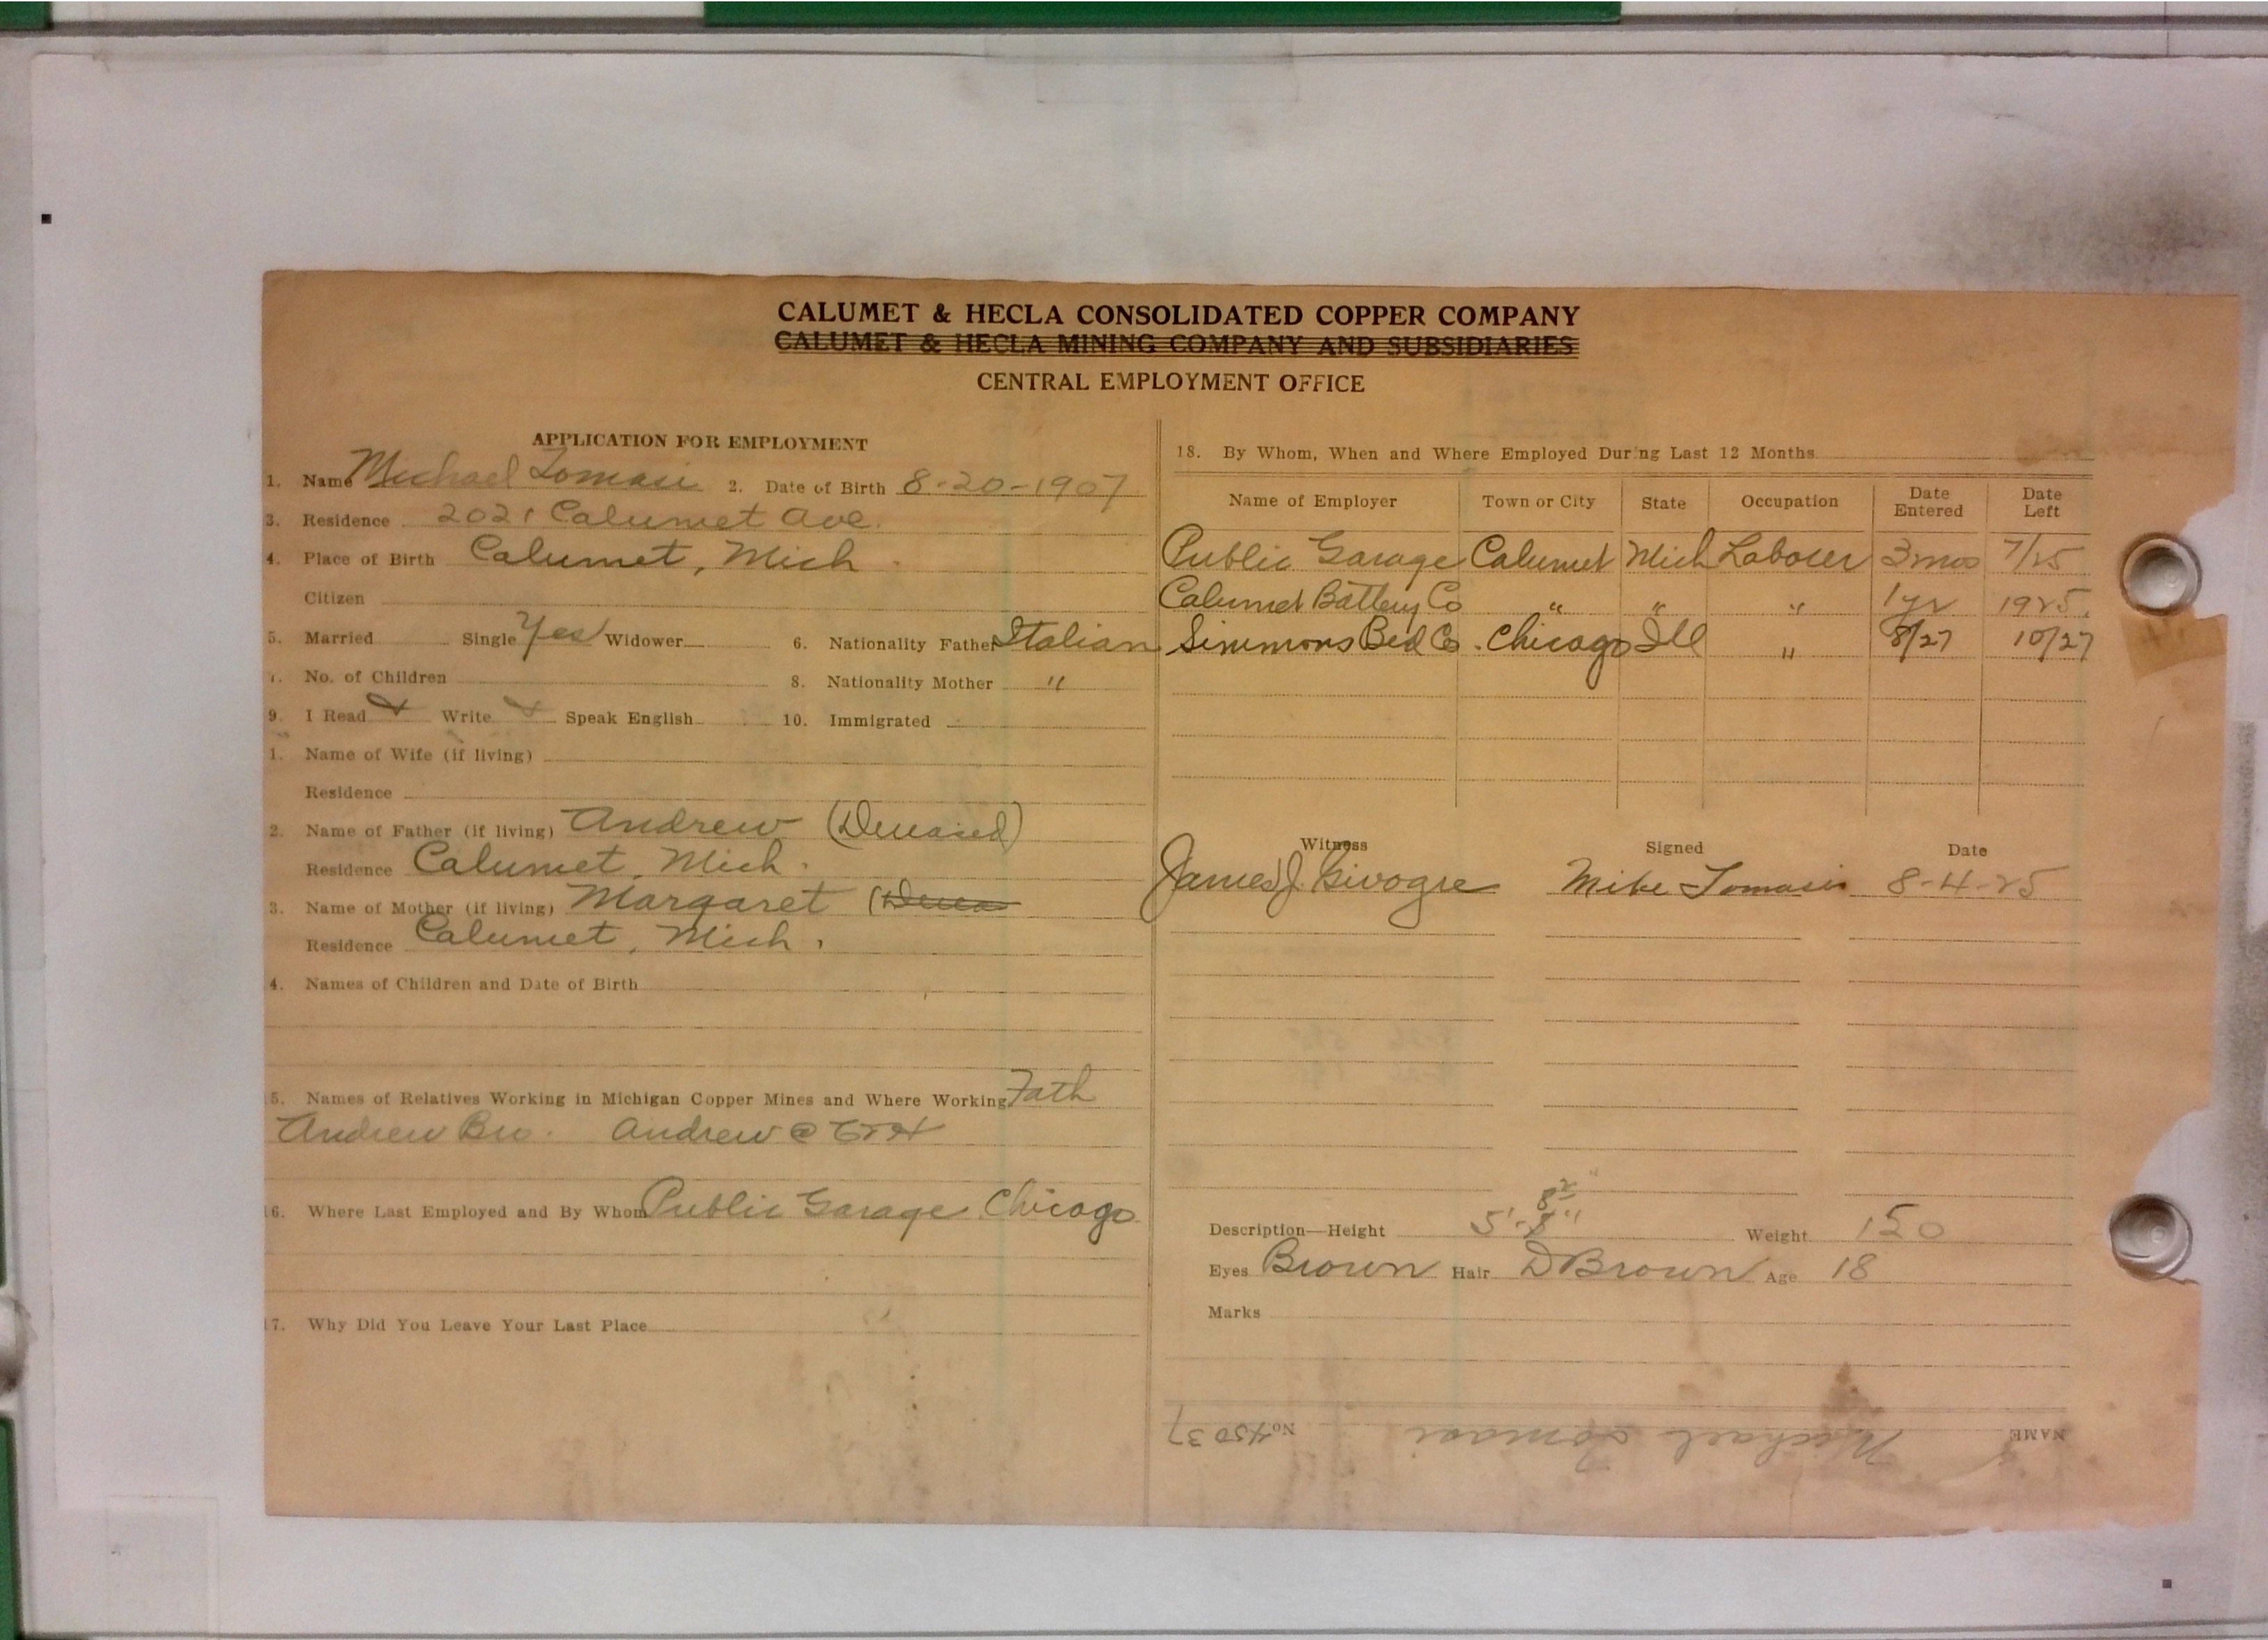 CALUMET & HECLA CONSOLIDATED COPPER COMPANY
CALUMET & HECLA MINING COMPANY AND SUBSIDIARIES
CENTRAL EMPLOYMENT OFFICE
APPLICATION FOR EMPLOYMENT
1. Name Michael Tomasi 2. Date of Birth 8-20-1907
3. Residence 2021 Calumet Ave.
4. Place of Birth Calumet, Mich
Citizen
5. Married Single Yes Widower 6. Nationality Father Italian
7. No. of Children 8. Nationality Mother "
9. I Read Write Speak English 10. Immigrated
1. Name of Wife (if living)
Residence
2. Name of Father (if living) Andrew (Deceased)
Residence Calumet, Mich.
3. Name of Mother (if living) Margaret (Decea
Residence Calumet, Mich.
4. Names of Children and Date of Birth
5. Names of Relatives Working in Michigan Copper Mines and Where Working Fath
Andrew Bro. Andrew @
16. Where Last Employed and By Whom Public Garage Chicago
17. Why Did You Leave Your Last Place
18. By Whom, When and Where Employed During Last 12 Months
Name of Employer Town or City State Occupation Date Entered Date Left
Public Garage Calumet Mich Laborer 3 mos 7/25
Calumet Battery Co " " " 1 yr 1925.
Simmons Bed Co. Chicago Ill " 8/27 10/27
Witness Signed Date
James J. Mike Tomasi 8-4-25
Description—Height 5'-8" Weight 150
Eyes Brown Hair D Brown Age 18
Marks
NAME Michael Tomasi No. 45037